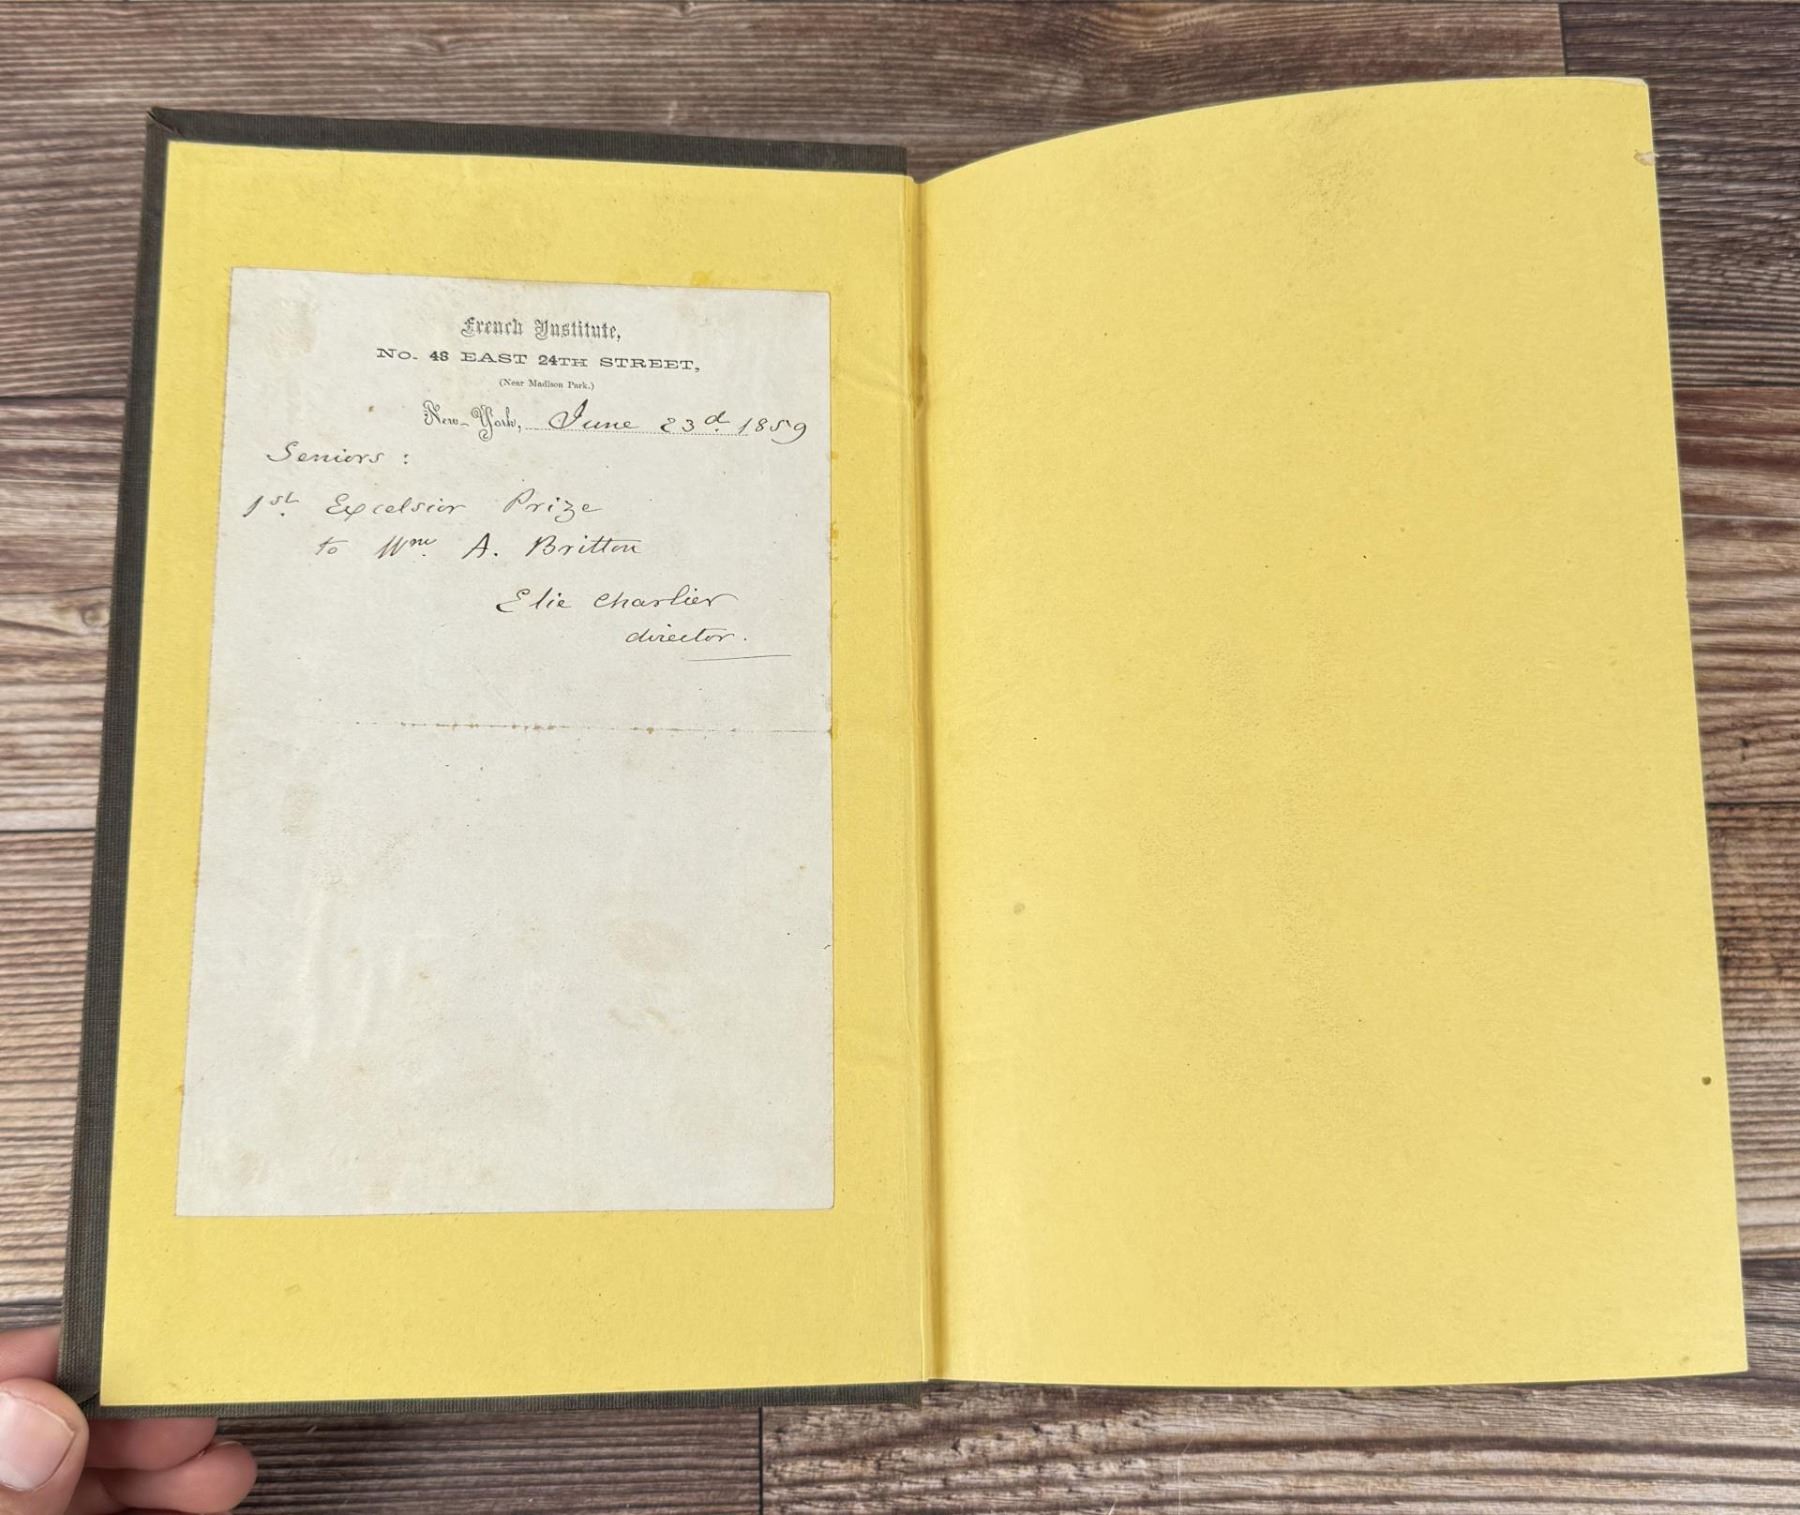 French Institute,
No. 48 EAST 24TH STREET,
(Near Madison Park.)
New-York, June 23d. 1859
Seniors :
1st. Excelsior Prize
to Wm. A. Britton
Elie Charlier
director.